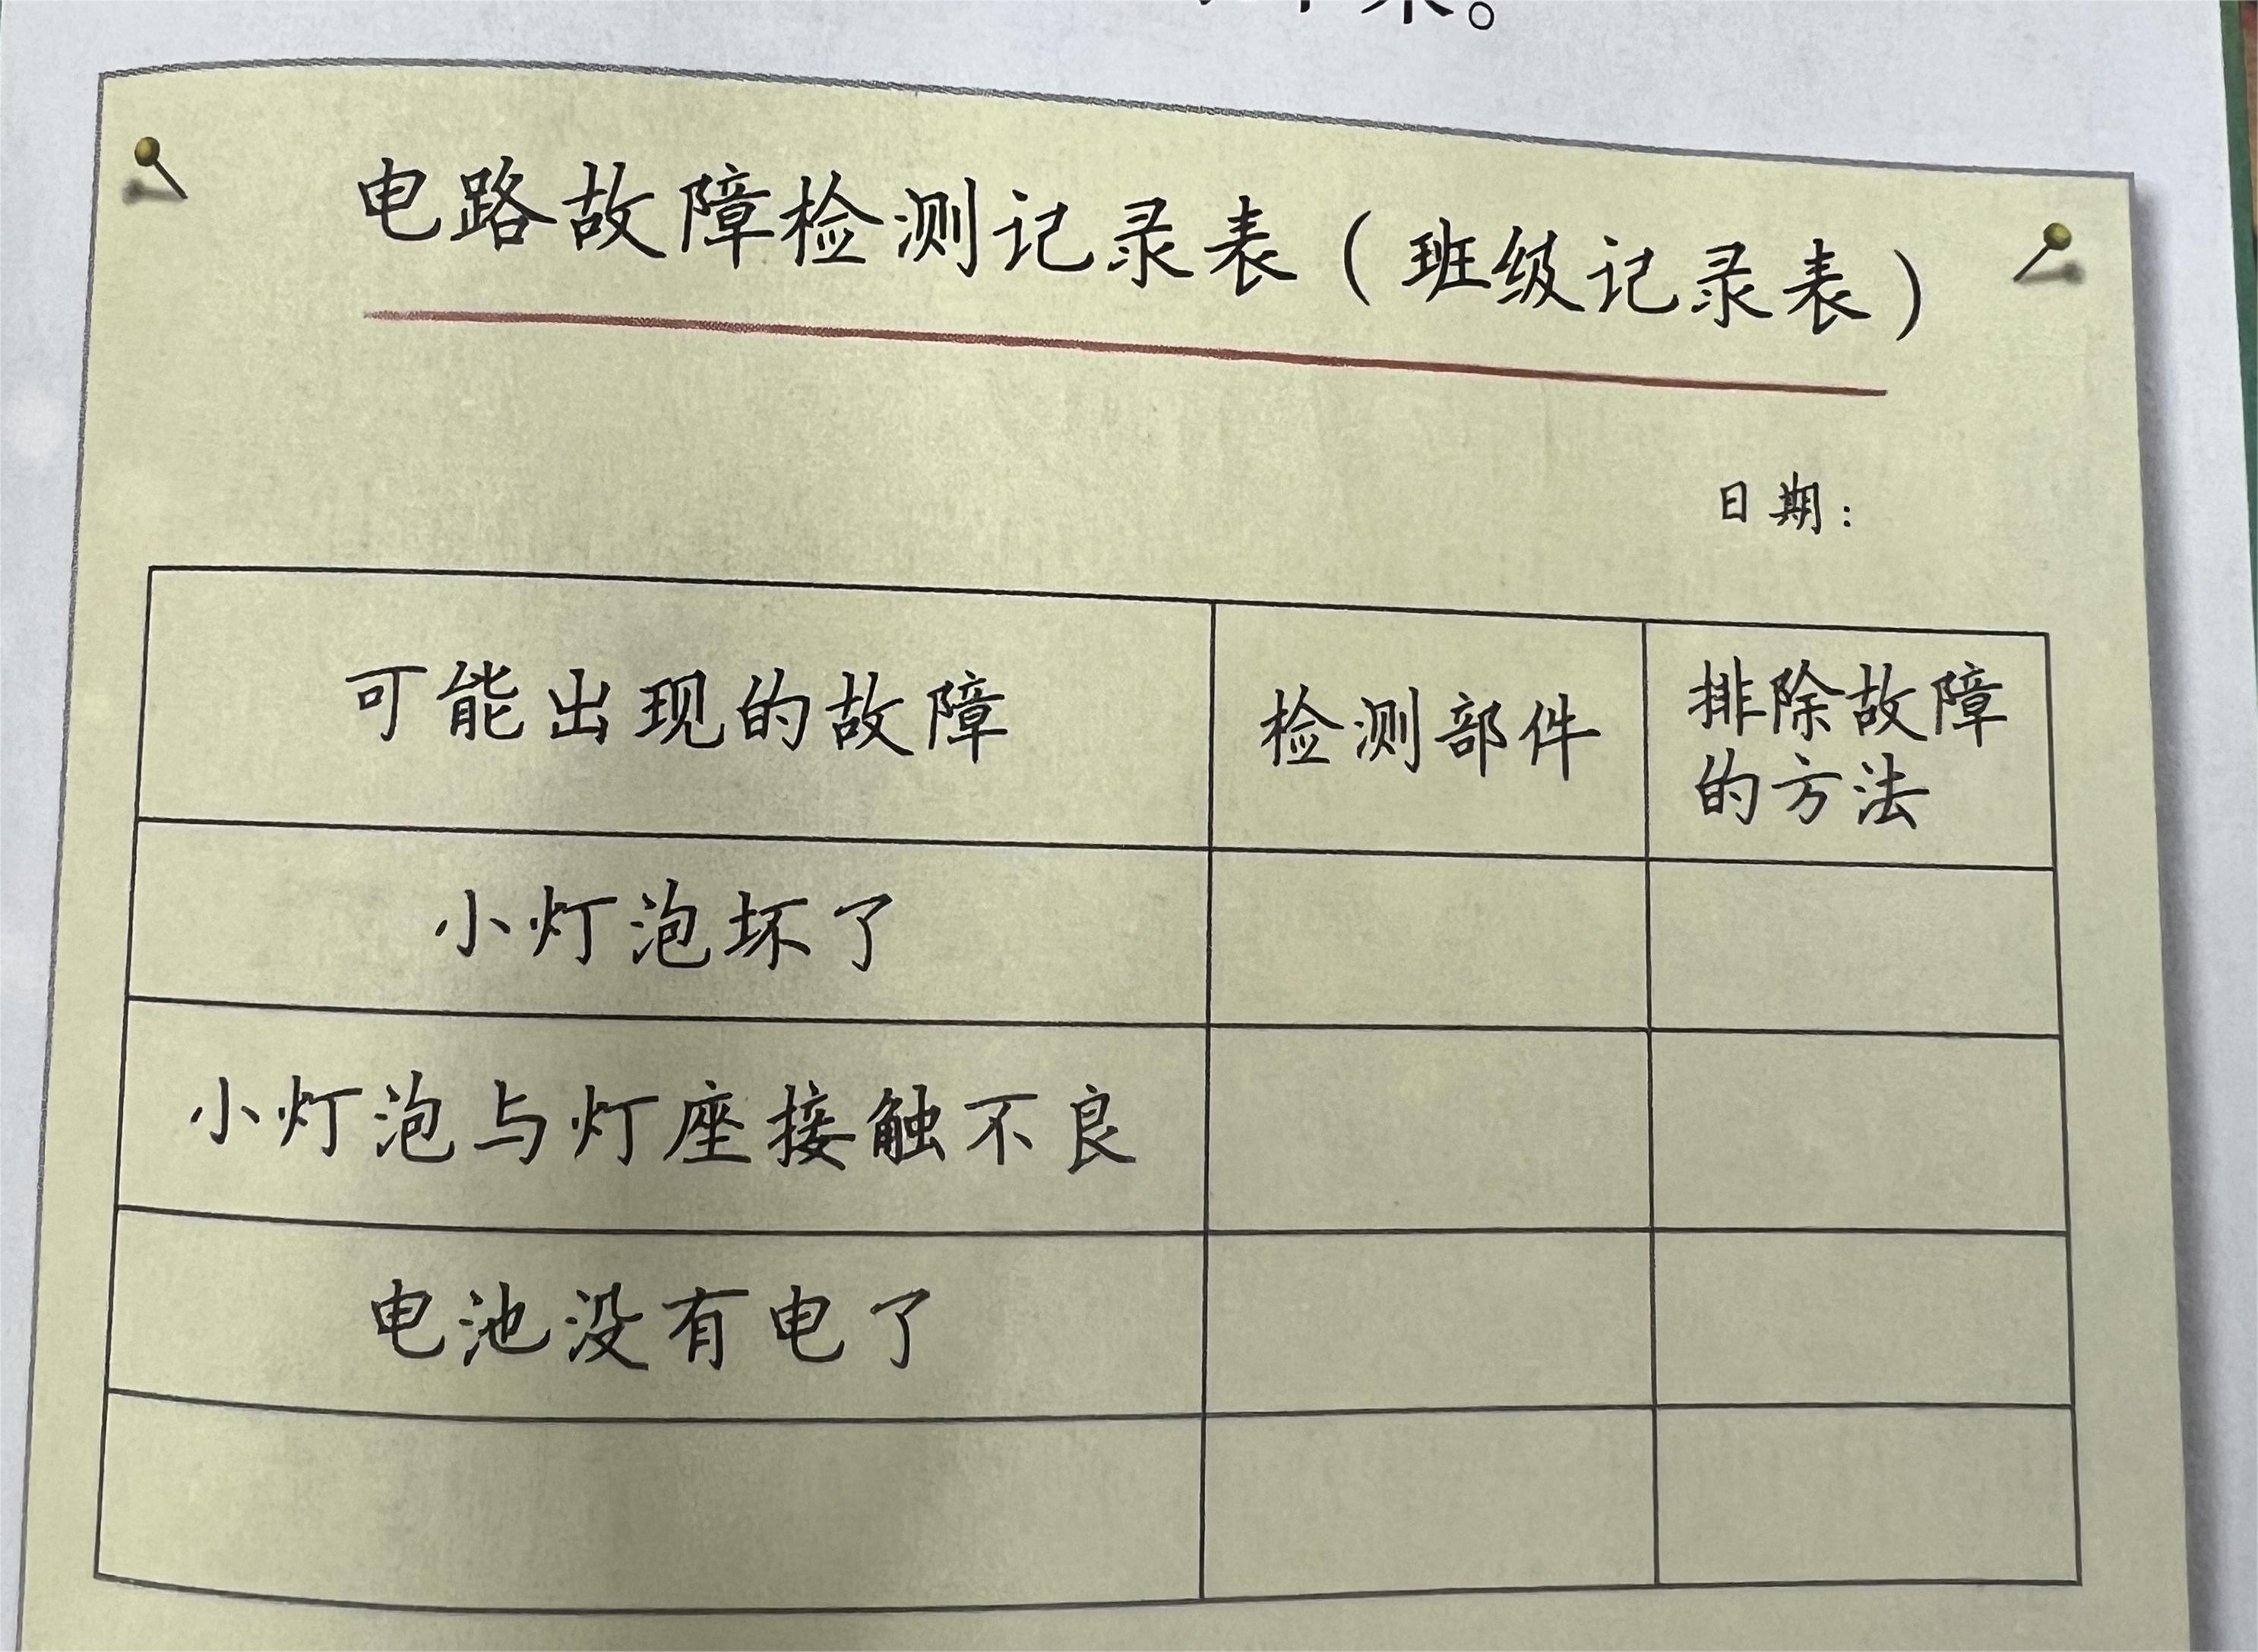 电路故障检测记录表（班级记录表）
日期：
可能出现的故障
检测部件
排除故障
的方法
小灯泡坏了
小灯泡与灯座接触不良
电池没有电了